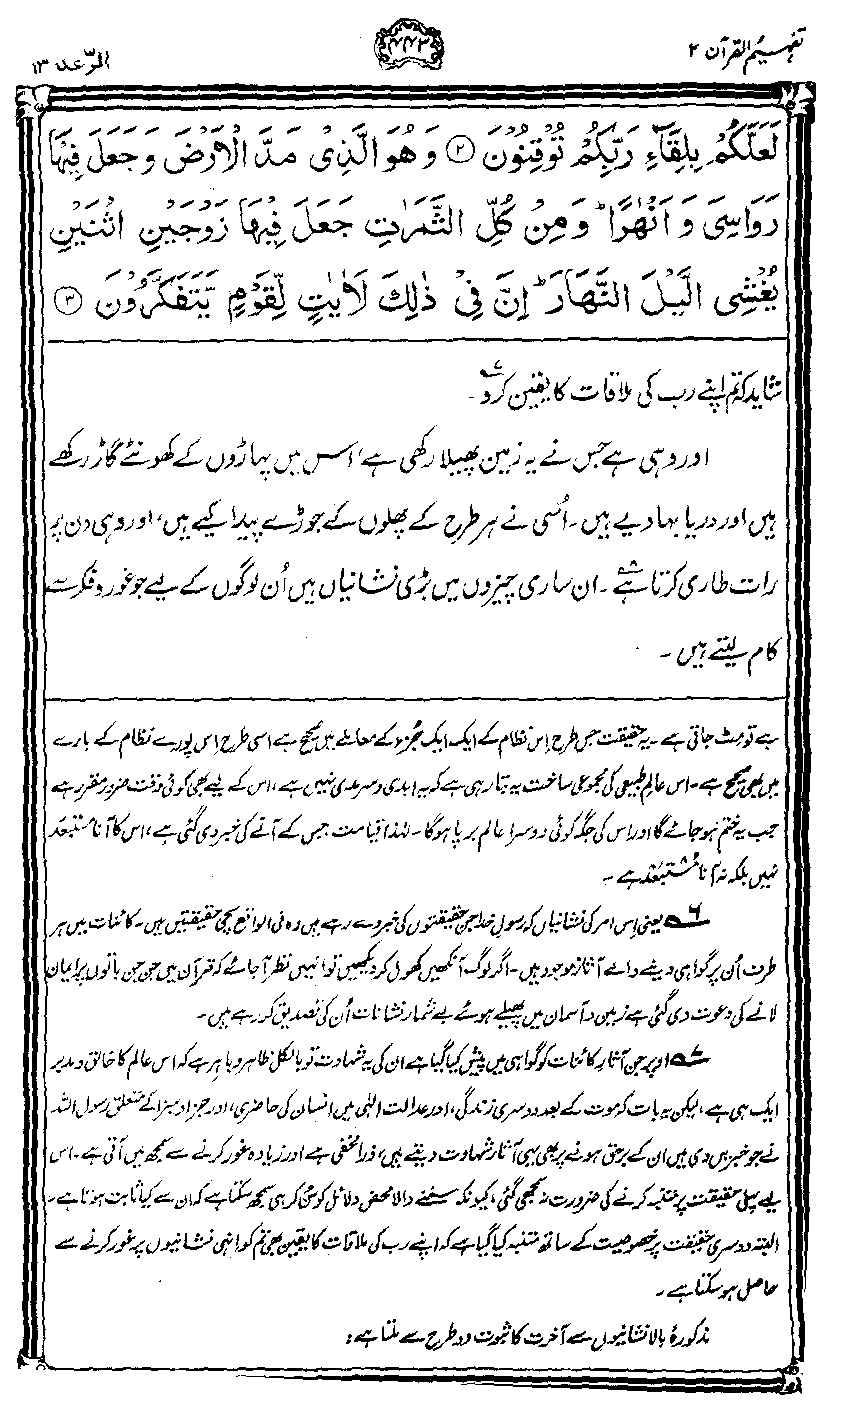 تفہیم القرآن ۲
۴۴۳
الرّعد ۱۳
لَعَلَّكُمْ بِلِقَآءِ رَبِّكُمْ تُوْقِنُوْنَ ۲ وَ هُوَ الَّذِیْ مَدَّ الْاَرْضَ وَ جَعَلَ فِیْهَا
رَوَاسِیَ وَ اَنْهٰرًا ؕ وَ مِنْ كُلِّ الثَّمَرٰتِ جَعَلَ فِیْهَا زَوْجَیْنِ اثْنَیْنِ
یُغْشِی الَّیْلَ النَّهَارَ ؕ اِنَّ فِیْ ذٰلِكَ لَاٰیٰتٍ لِّقَوْمٍ یَّتَفَكَّرُوْنَ ۳
شاید کہ تم اپنے رب کی ملاقات کا یقین کرو۷۔
اور وہی ہے جس نے یہ زمین پھیلا رکھی ہے، اس میں پہاڑوں کے کھونٹے گاڑ رکھے
ہیں اور دریا بہا دیے ہیں۔ اُسی نے ہر طرح کے پھلوں کے جوڑے پیدا کیے ہیں، اور وہی دن پر
رات طاری کرتا ہے۸۔ ان ساری چیزوں میں بڑی نشانیاں ہیں اُن لوگوں کے لیے جو غور و فکر سے
کام لیتے ہیں۔
ہے تو مٹ جاتی ہے۔ یہ حقیقت جس طرح اِس نظام کے ایک ایک جُزء کے معاملے میں صحیح ہے اسی طرح اِس پورے نظام کے بارے
میں بھی صحیح ہے۔ اس عالمِ طبیعی کی مجموعی ساخت یہ بتا رہی ہے کہ یہ ابدی و سرمدی نہیں ہے، اس کے لیے بھی کوئی وقت ضرور مقرر ہے
جب یہ ختم ہو جائے گا اور اس کی جگہ کوئی دوسرا عالم برپا ہوگا۔ لہٰذا قیامت جس کے آنے کی خبر دی گئی ہے، اس کا آنا مستبعَد
نہیں بلکہ نہ آنا مُستبعَد ہے۔
۶ یعنی اِس امر کی نشانیاں کہ رسولِ خدا جن حقیقتوں کی خبر دے رہے ہیں وہ فی الواقع سچی حقیقتیں ہیں۔ کائنات میں ہر
طرف اُن پر گواہی دینے والے آثار موجود ہیں۔ اگر لوگ آنکھیں کھول کر دیکھیں تو انہیں نظر آ جائے کہ قرآن میں جن جن باتوں پر ایمان
لانے کی دعوت دی گئی ہے زمین و آسمان میں پھیلے ہوئے بے شمار نشانات اُن کی تصدیق کر رہے ہیں۔
۷ اوپر جن آثارِ کائنات کو گواہی میں پیش کیا گیا ہے ان کی یہ شہادت تو بالکل ظاہر و باہر ہے کہ اس عالم کا خالق و مدبر
ایک ہی ہے، لیکن یہ بات کہ موت کے بعد دوسری زندگی، اور عدالت الٰہی میں انسان کی حاضری، اور جزا و سزا کے متعلق رسول اللہ
نے جو خبریں دی ہیں ان کے برحق ہونے پر بھی یہی آثار شہادت دیتے ہیں، ذرا مخفی ہے اور زیادہ غور کرنے سے سمجھ میں آتی ہے۔ اس
لیے پہلی حقیقت پر متنبہ کرنے کی ضرورت نہ سمجھی گئی، کیونکہ سننے والا محض دلائل کو سُن کر ہی سمجھ سکتا ہے کہ ان سے کیا ثابت ہوتا ہے۔
البتہ دوسری حقیقت پر خصوصیت کے ساتھ متنبہ کیا گیا ہے کہ اپنے رب کی ملاقات کا یقین بھی تم کو انہی نشانیوں پر غور کرنے سے
حاصل ہو سکتا ہے۔
مذکورۂ بالا نشانیوں سے آخرت کا ثبوت دو طرح سے ملتا ہے: